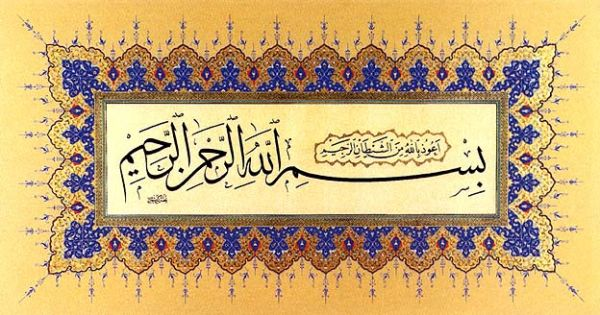 اعوذ بالله من الشيطان الرجيم
بسم الله الرحمن الرحيم